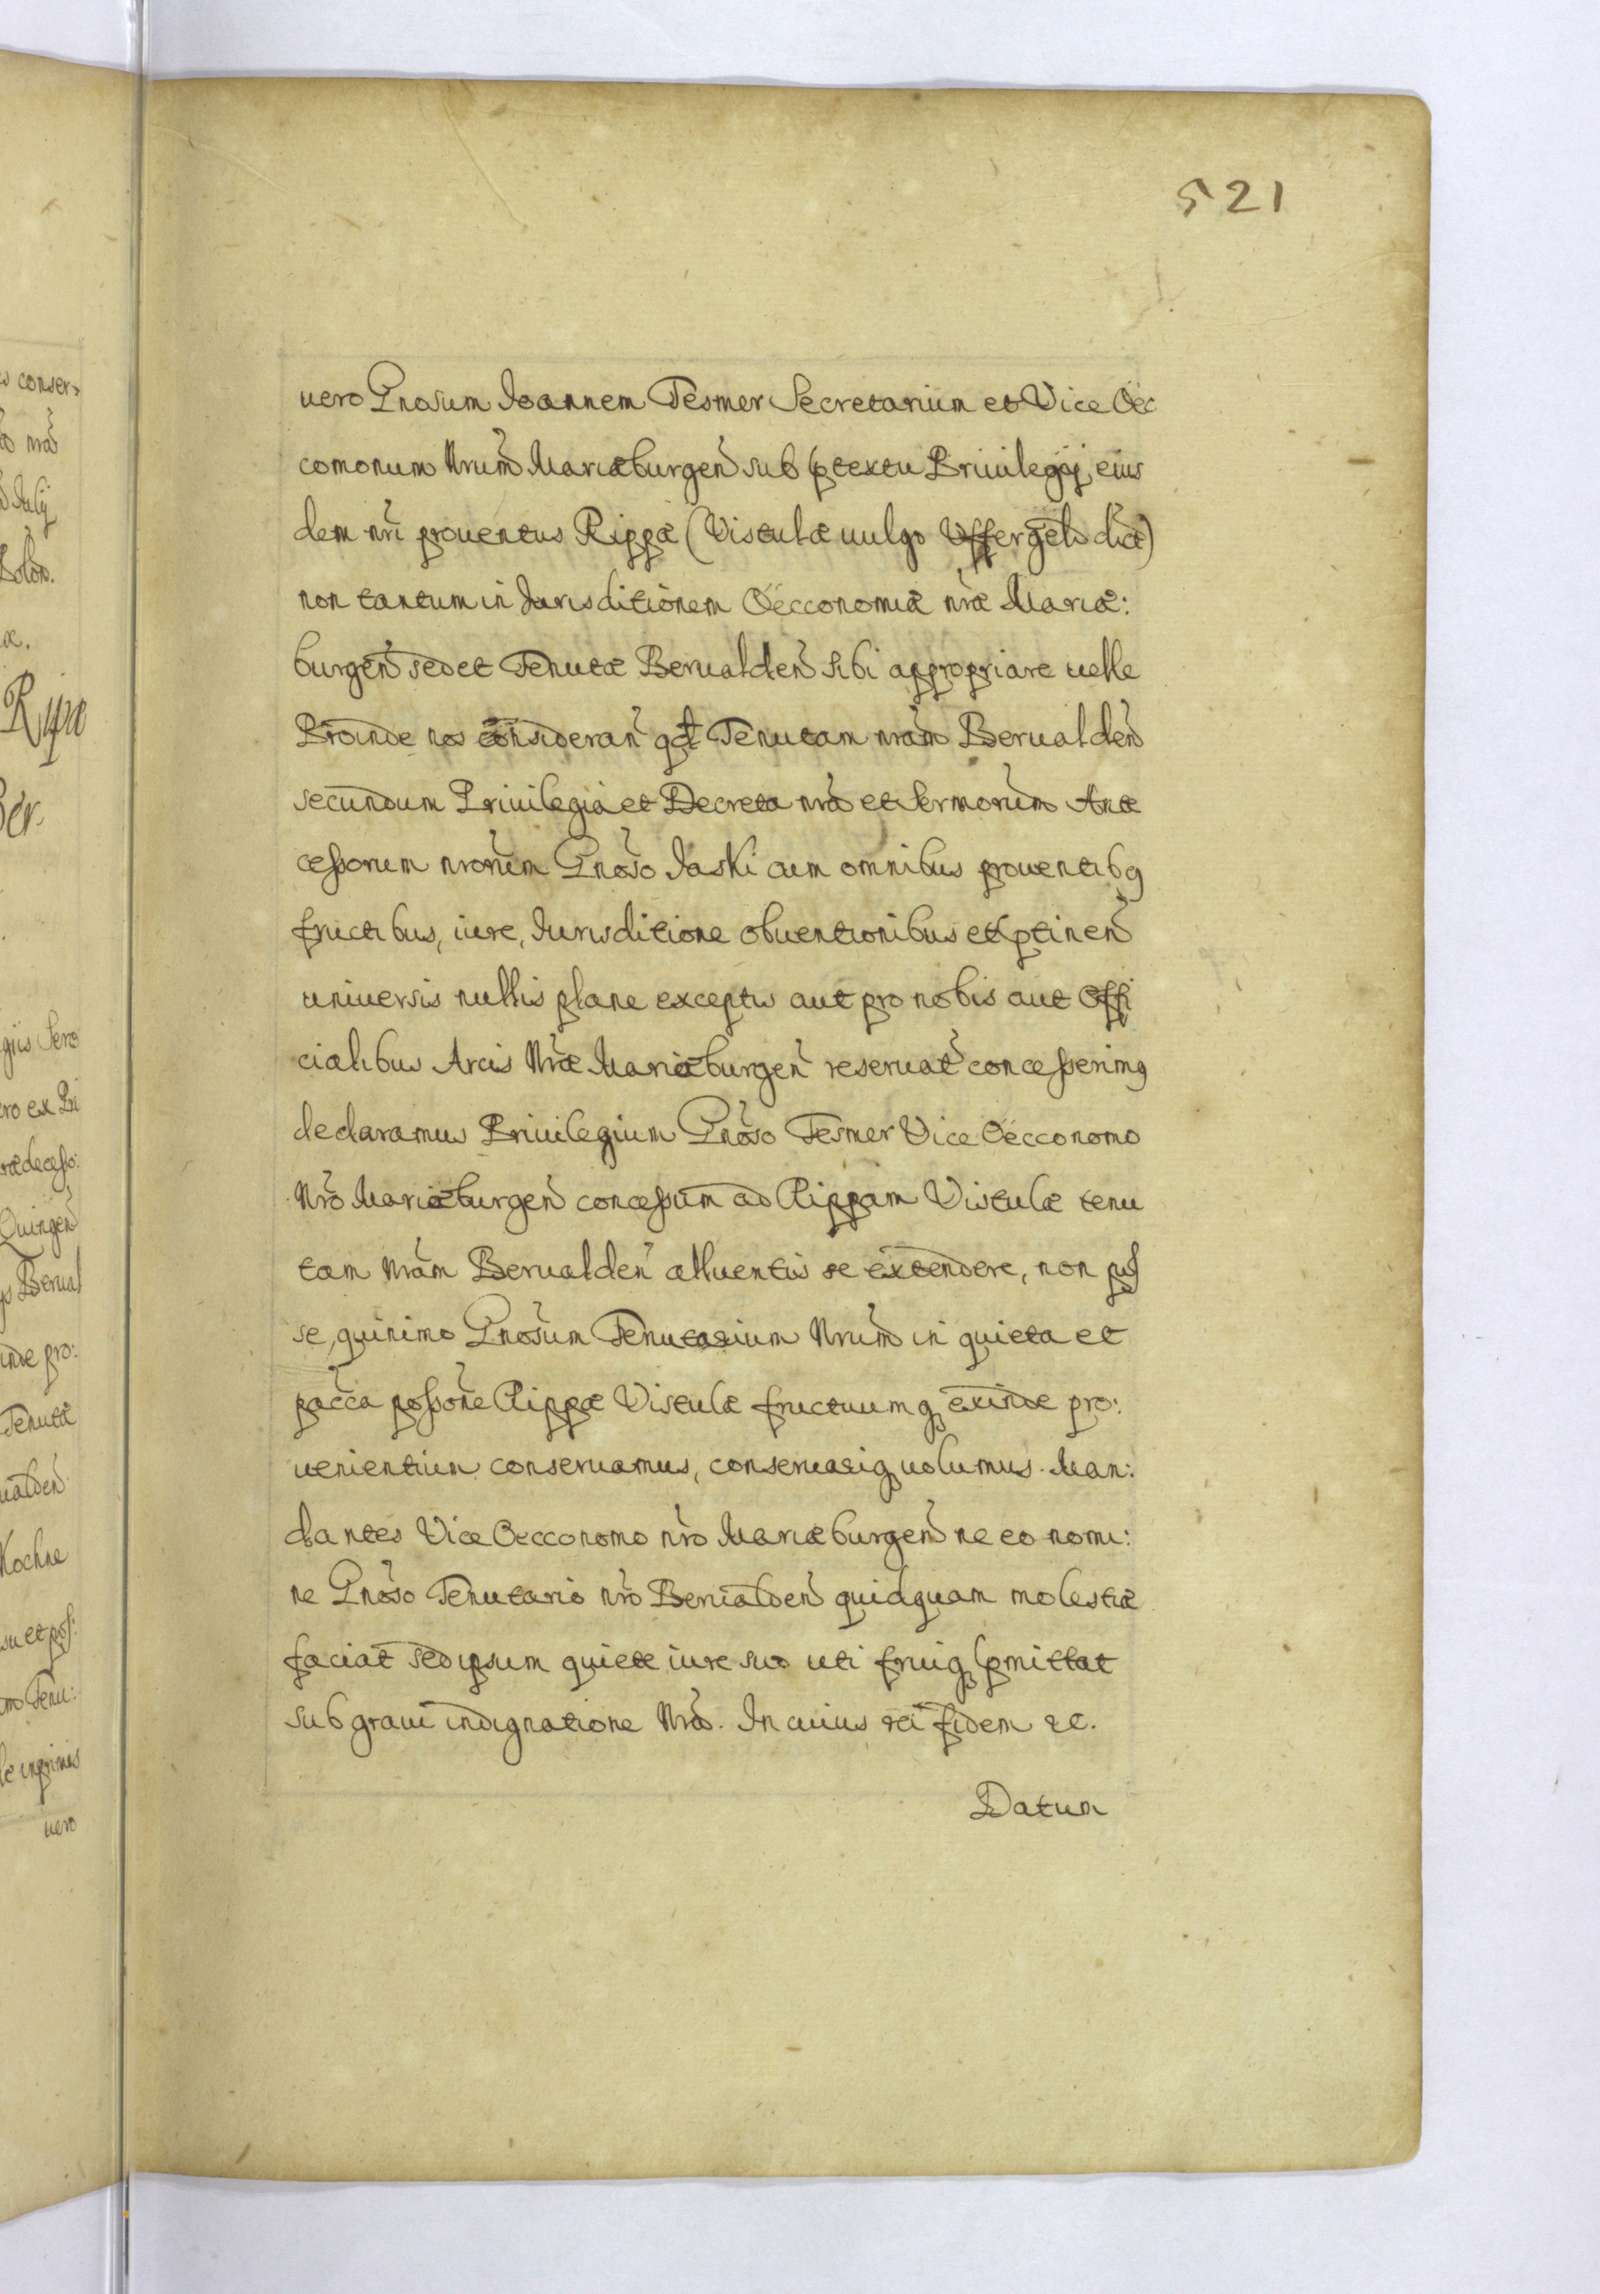 521
uero Gnosum Joannem Tesmer Secretarium et Vice Oec
comonum Nrum Mariæburgen sub ptextu Priuilegij eius
dem nri prouentus Rippæ (Vistulæ uulgo Vffergeld dictæ)
non tantum in Jurisditionem Oecconomiæ nræ Mariæ:
burgen sed et Tenutæ Berualden sibi appropriare uelle
Proinde nos consideran qd Tenutam nram Berualden
secundum Priuilegia et Decreta nra et Sermorum Ante
cessorum nrorum Gnoso Jaski cum omnibus prouentibq
fructibus, iure, Jurisditione obuentionibus et ptinen
uniuersis nullis plane exceptis aut pro nobis aut Offi
cialibus Arcis Nræ Mariæburgen reseruat concesserimq
declaramus Priuilegium Gnoso Tesmer Vice Oecconomo
Nro Mariæburgen concessum ad Rippam Vistulæ tenu
tam Nram Berualden alluentis se extendere, non pos
se, quinimo Gnosum Tenutarium Nrum in quieta et
pacca possone Rippæ Vistulæ fructuumq exinde pro:
uenientium conseruamus, conseruariq uolumus. Man:
dantes Vice Oecconomo nro Mariæburgen ne eo nomi:
ne Gnoso Tenutario nro Berualden quidquam molestiæ
faciat sed ipsum quiete iure suo uti fruiq pmittat
sub graui indignatione Nra. In cuius rei fidem &c.
Datum